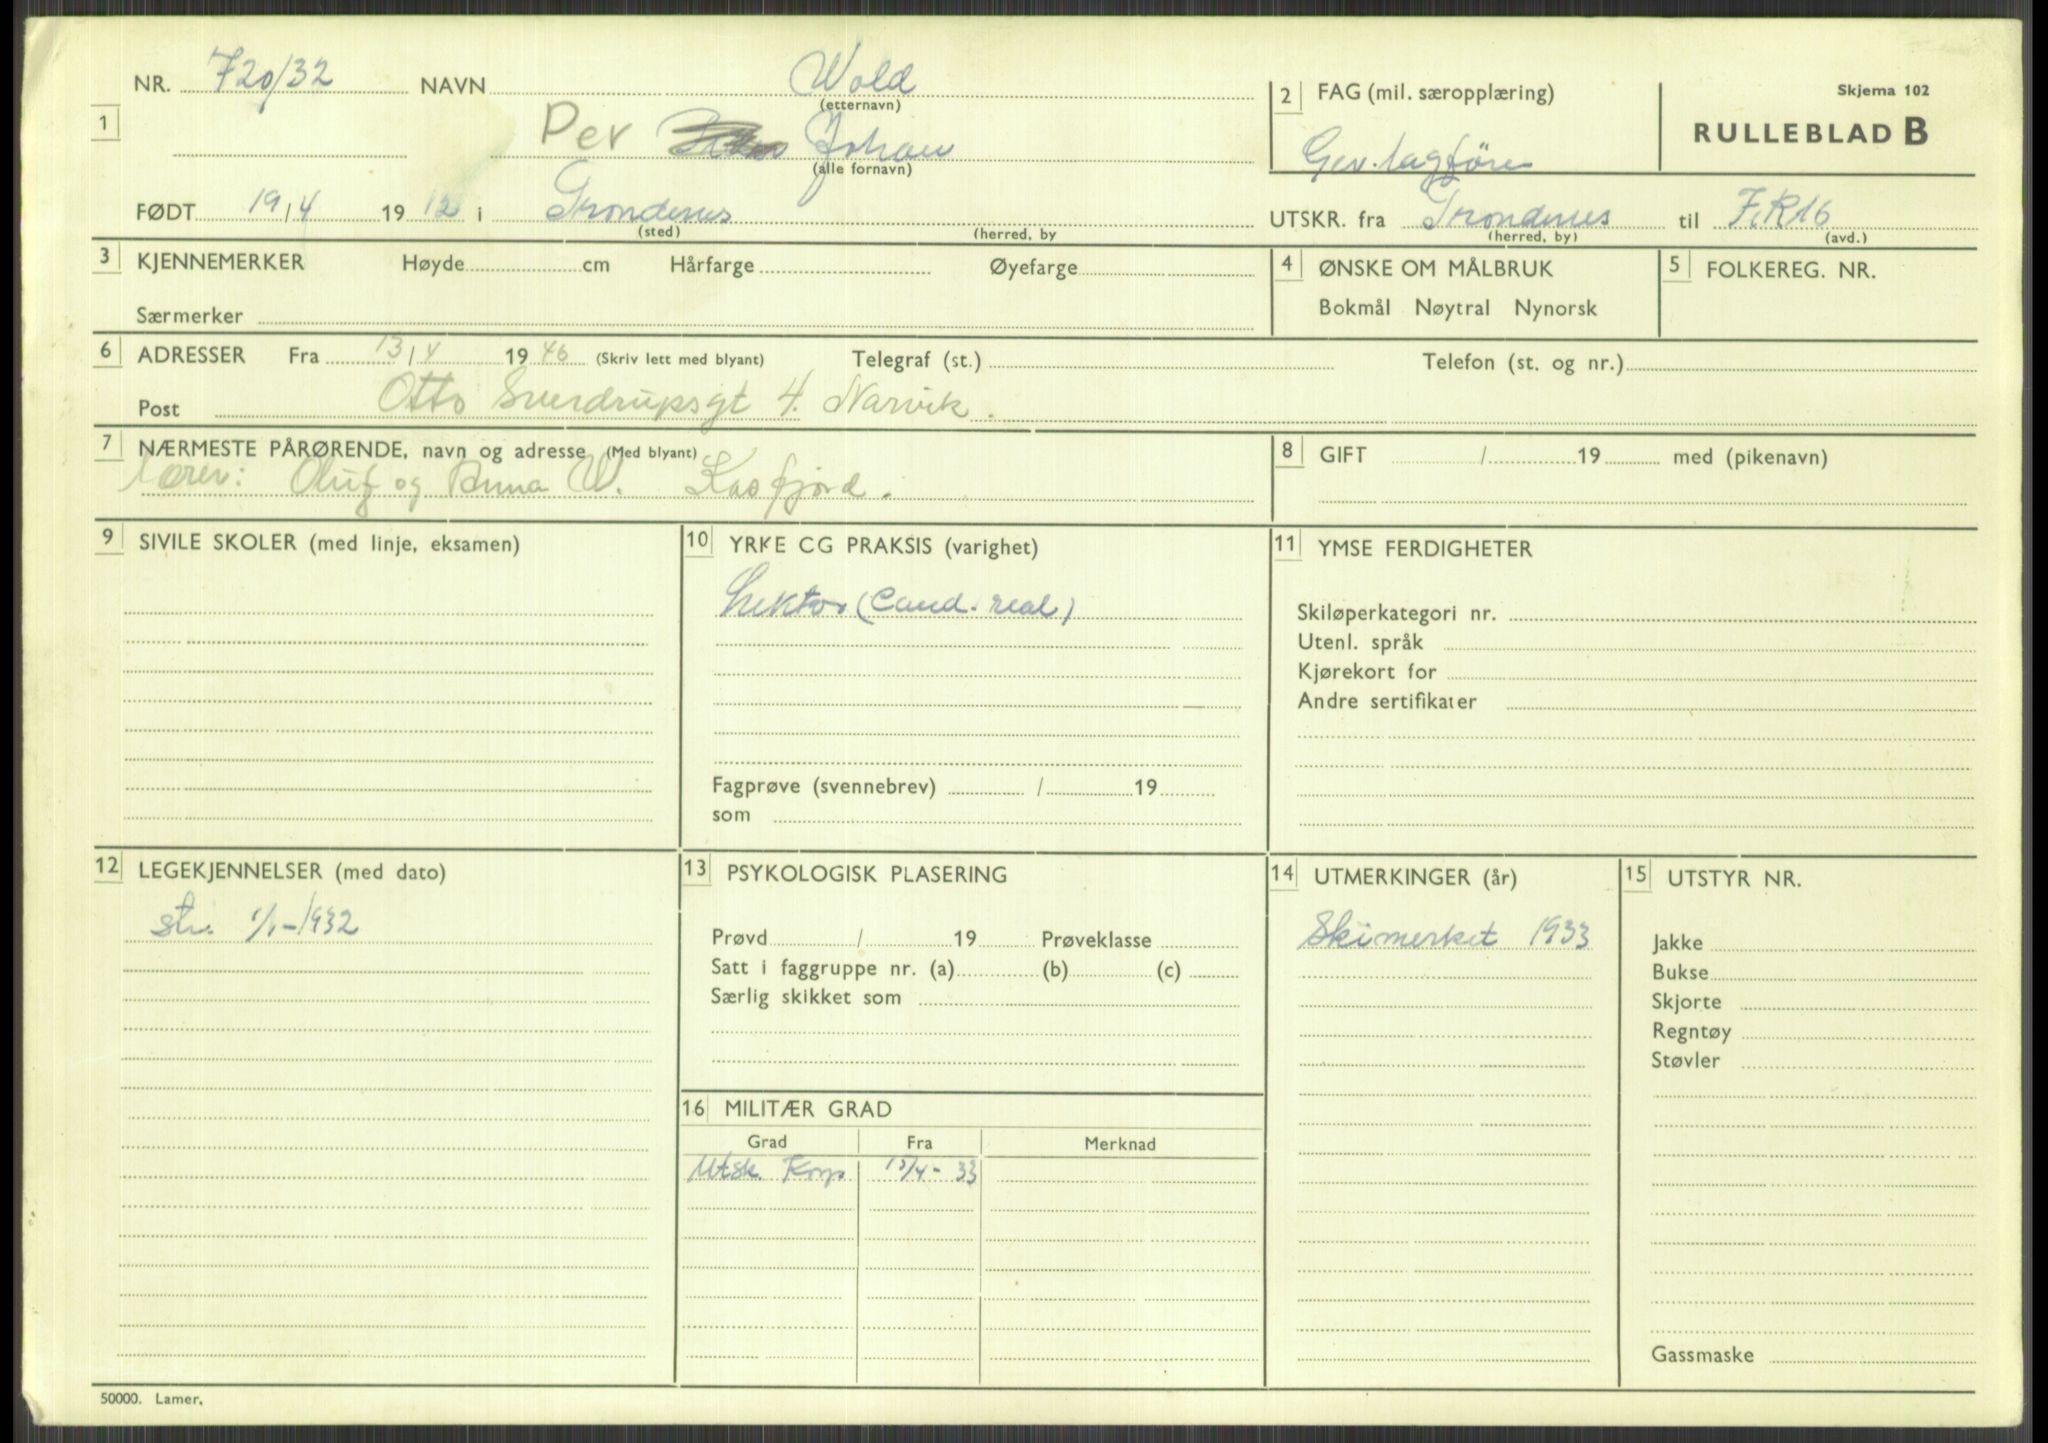 NR. 720/32 NAVN Wold
(etternavn)
2 FAG (mil. særopplæring)
Skjema 102
RULLEBLAD B
1
Per Johan
(alle fornavn)
Gev. lagfører
FØDT 19/4 1912 i Trondenes
(sted) (herred, by
UTSKR. fra Trondenes til I.R.16
(herred, by) (avd.)
3 KJENNEMERKER Høyde cm Hårfarge Øyefarge
Særmerker
4 ØNSKE OM MÅLBRUK
Bokmål Nøytral Nynorsk
5 FOLKEREG. NR.
6 ADRESSER Fra 13/4 1946 (Skriv lett med blyant) Telegraf (st.) Telefon (st. og nr.)
Post Otto Sverdrupsgt 4. Narvik.
7 NÆRMESTE PÅRØRENDE, navn og adresse (Med blyant)
Oluf og Anna W. Kasfjord.
8 GIFT / 19 med (pikenavn)
9 SIVILE SKOLER (med linje, eksamen)
10 YRKE CG PRAKSIS (varighet)
Lektor (Cand. real)
Fagprøve (svennebrev) / 19
som
11 YMSE FERDIGHETER
Skiløperkategori nr.
Utenl. språk
Kjørekort for
Andre sertifikater
12 LEGEKJENNELSER (med dato)
str. 1/1-1932
13 PSYKOLOGISK PLASERING
Prøvd / 19 Prøveklasse
Satt i faggruppe nr. (a) (b) (c)
Særlig skikket som
14 UTMERKINGER (år)
Skimerket 1933
15 UTSTYR NR.
Jakke
Bukse
Skjorte
Regntøy
Støvler
Gassmaske
16 MILITÆR GRAD
Grad Fra Merknad
Utsk. Korp 15/4-33
50000. Lamer.